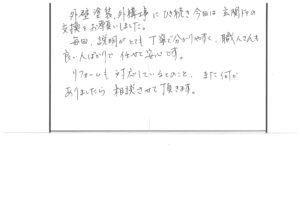 外壁塗装、外構工事にひき続き今回は玄関ドアの
交換をお願いしました。
毎回、説明がとても丁寧で分かりやすく、職人さんも
良い人ばかりで任せて安心です。
リフォームも対応しているとのこと、また何か
ありましたら相談させて頂きます。